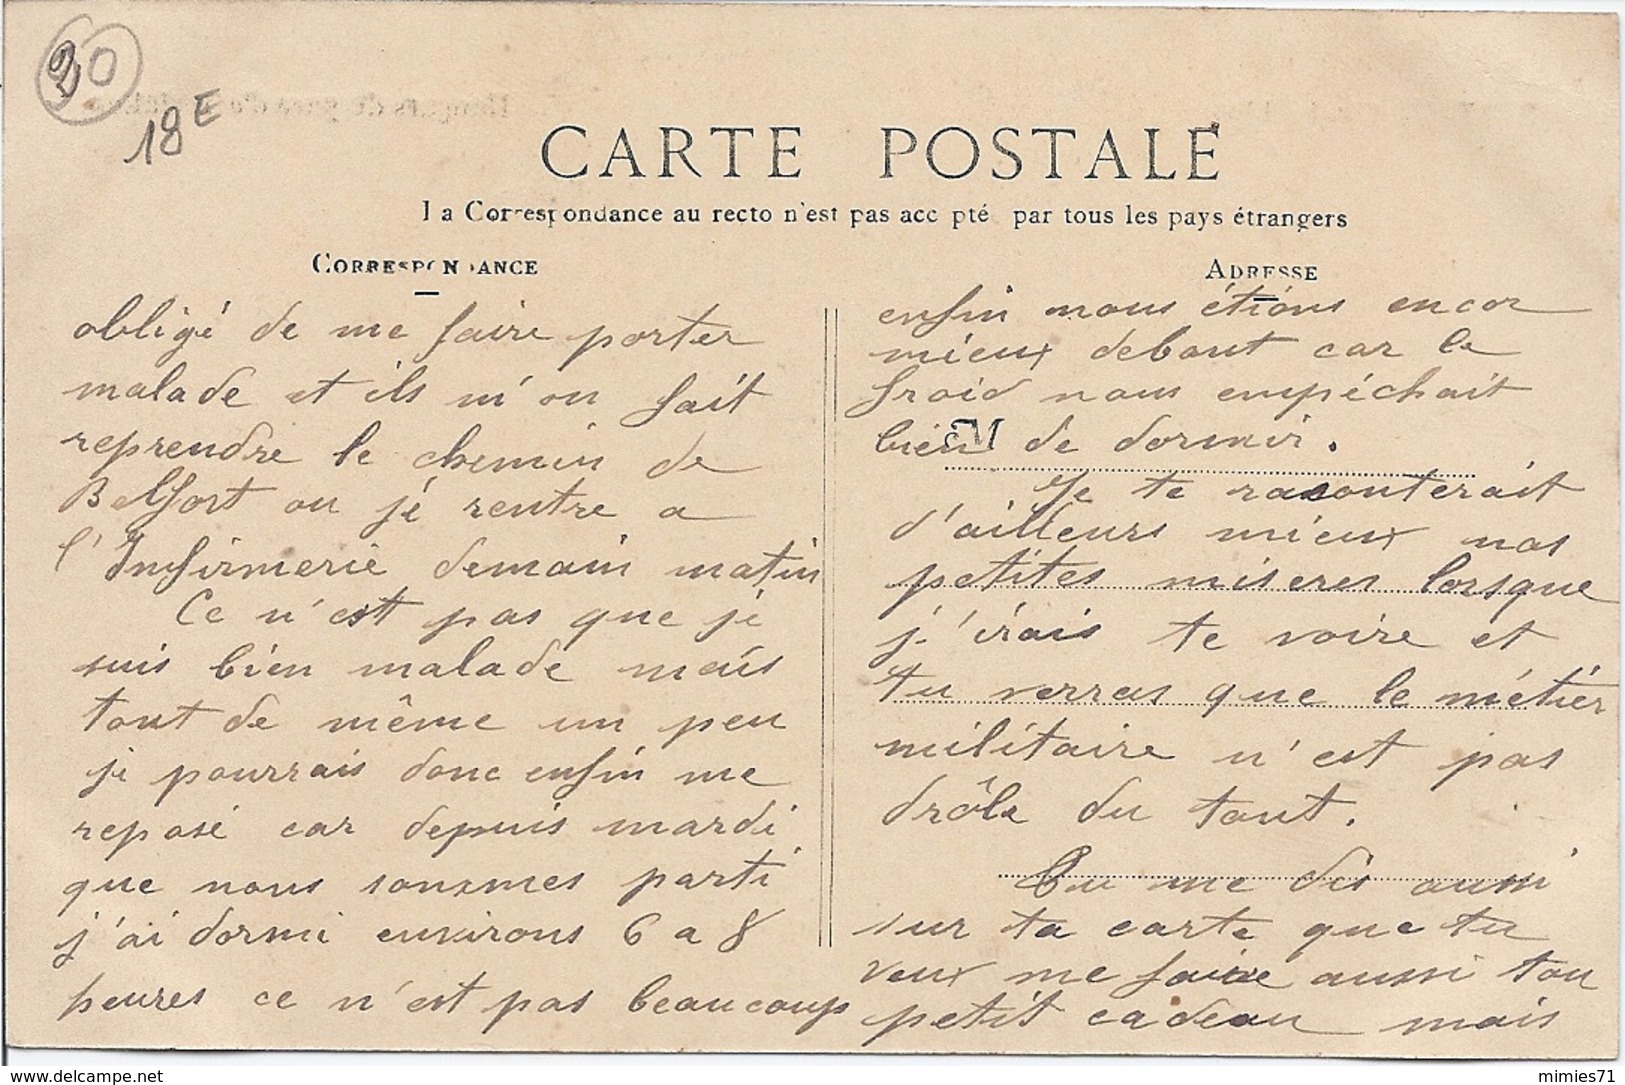 20
18E
CARTE POSTALE
La Correspondance au recto n'est pas acc pté par tous les pays étrangers
CORRESPONDANCE
obligé de me faire porter
malade et ils m'on fait
reprendre le chemin de
Belfort ou je rentre a
l'Infirmerie demain matin
Ce n'est pas que je
suis bien malade mais
tout de même un peu
je pourrais donc enfin me
reposé car depuis mardi
que nous sommes parti
j'ai dormi environs 6 a 8
heures ce n'est pas beaucoup
ADRESSE
enfin nous étions encor
mieux debout car le
froid nous empéchait
bien de dormir.
Je te raconterait
d'ailleurs mieux nos
petites miseres lorsque
j'irais te voire et
tu verras que le métier
militaire n'est pas
drôle du tout.
Tu me dis aussi
sur ta carte que tu
veux me faire aussi ton
petit cadeau mais
https://www.delcampe.net
mimies71